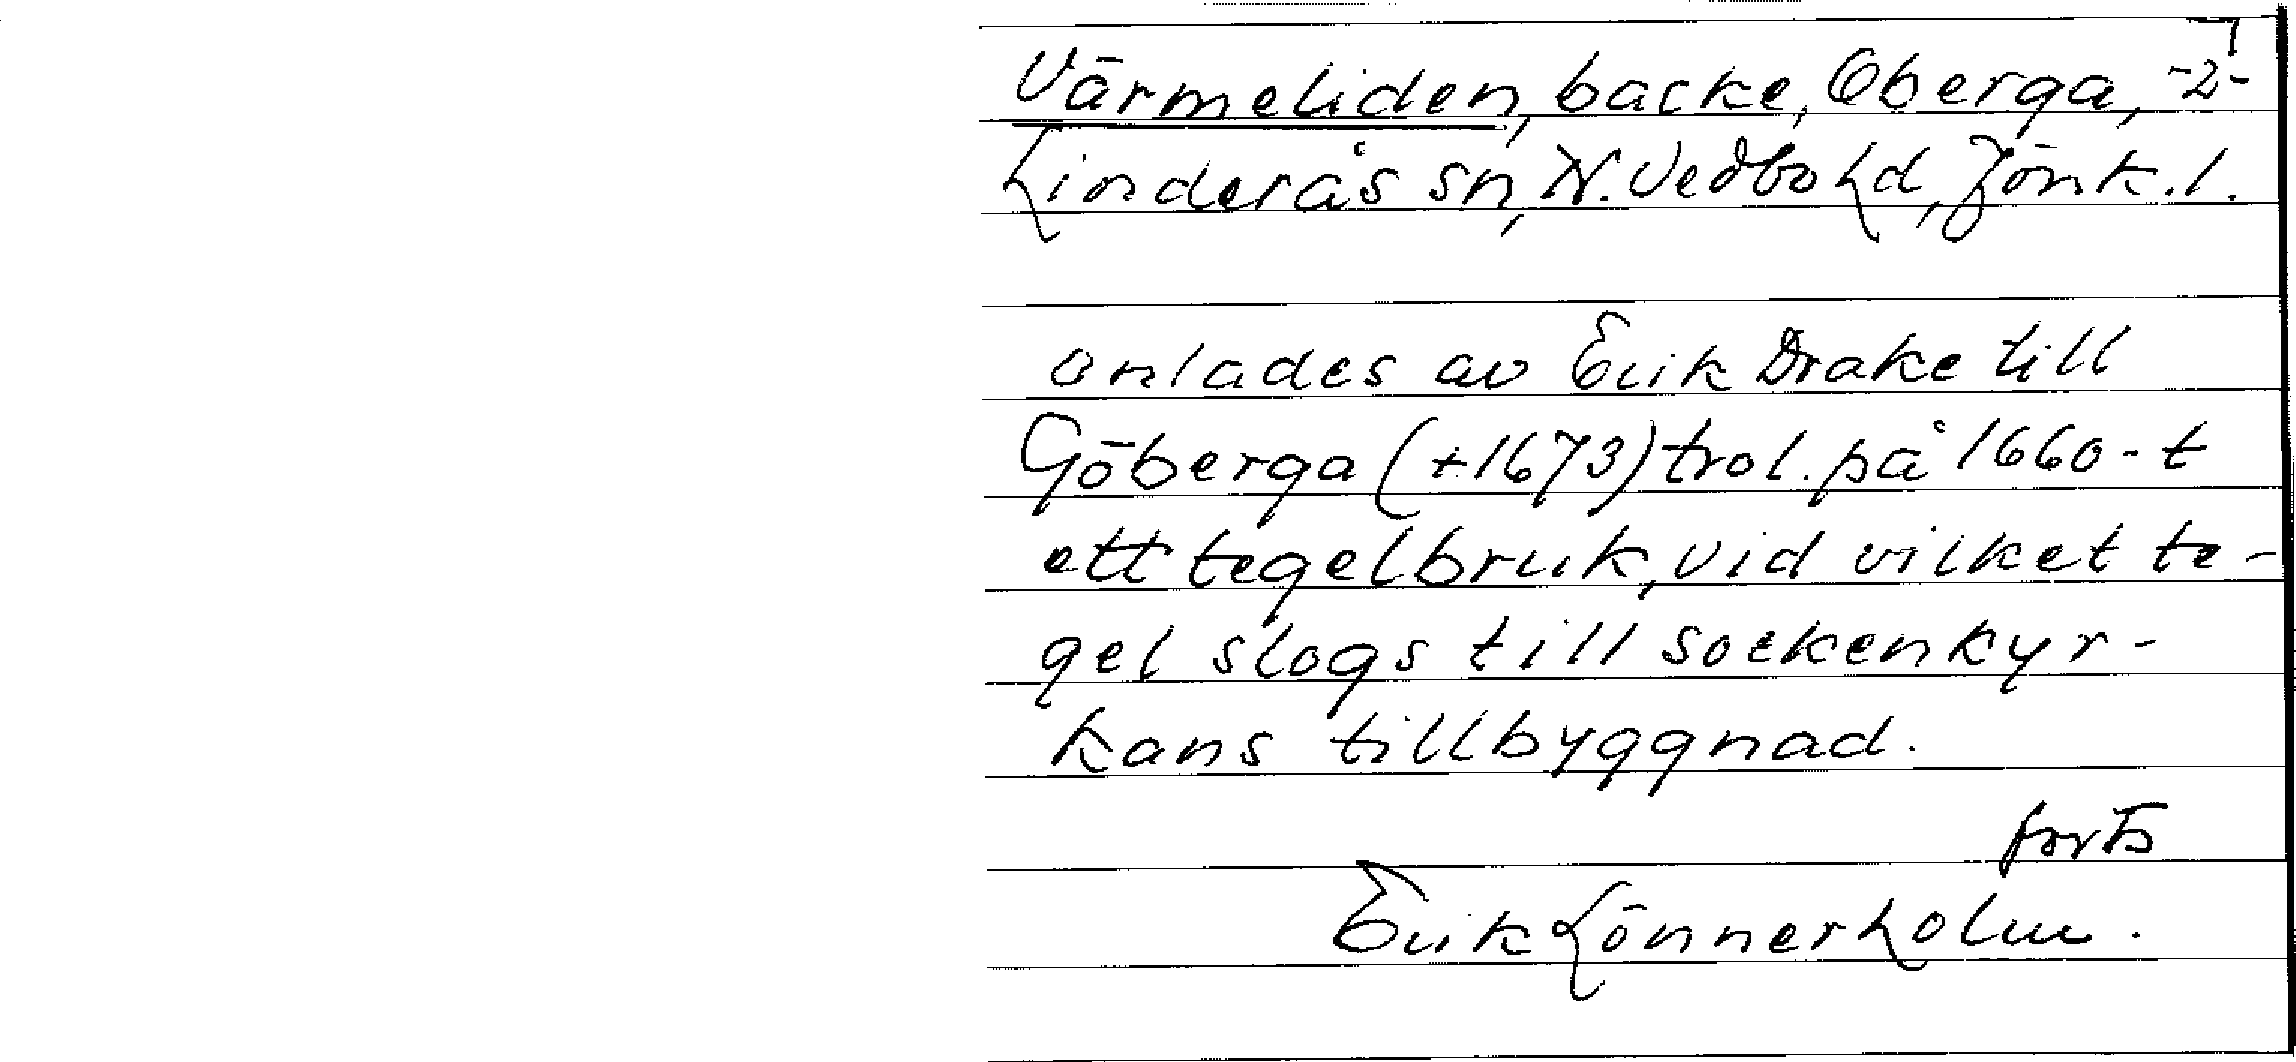 Värmeliden, backe, Oberga, -2-
Linderås sn, N. Vedbo hd, Jönk. l.
anlades av Erik Drake till
Göberga (+1673) trol. på 1660-t
ett tegelbruk, vid vilket te-
gel slogs till sockenkyr-
kans tillbyggnad.
forts
Erik Lönnerholm.